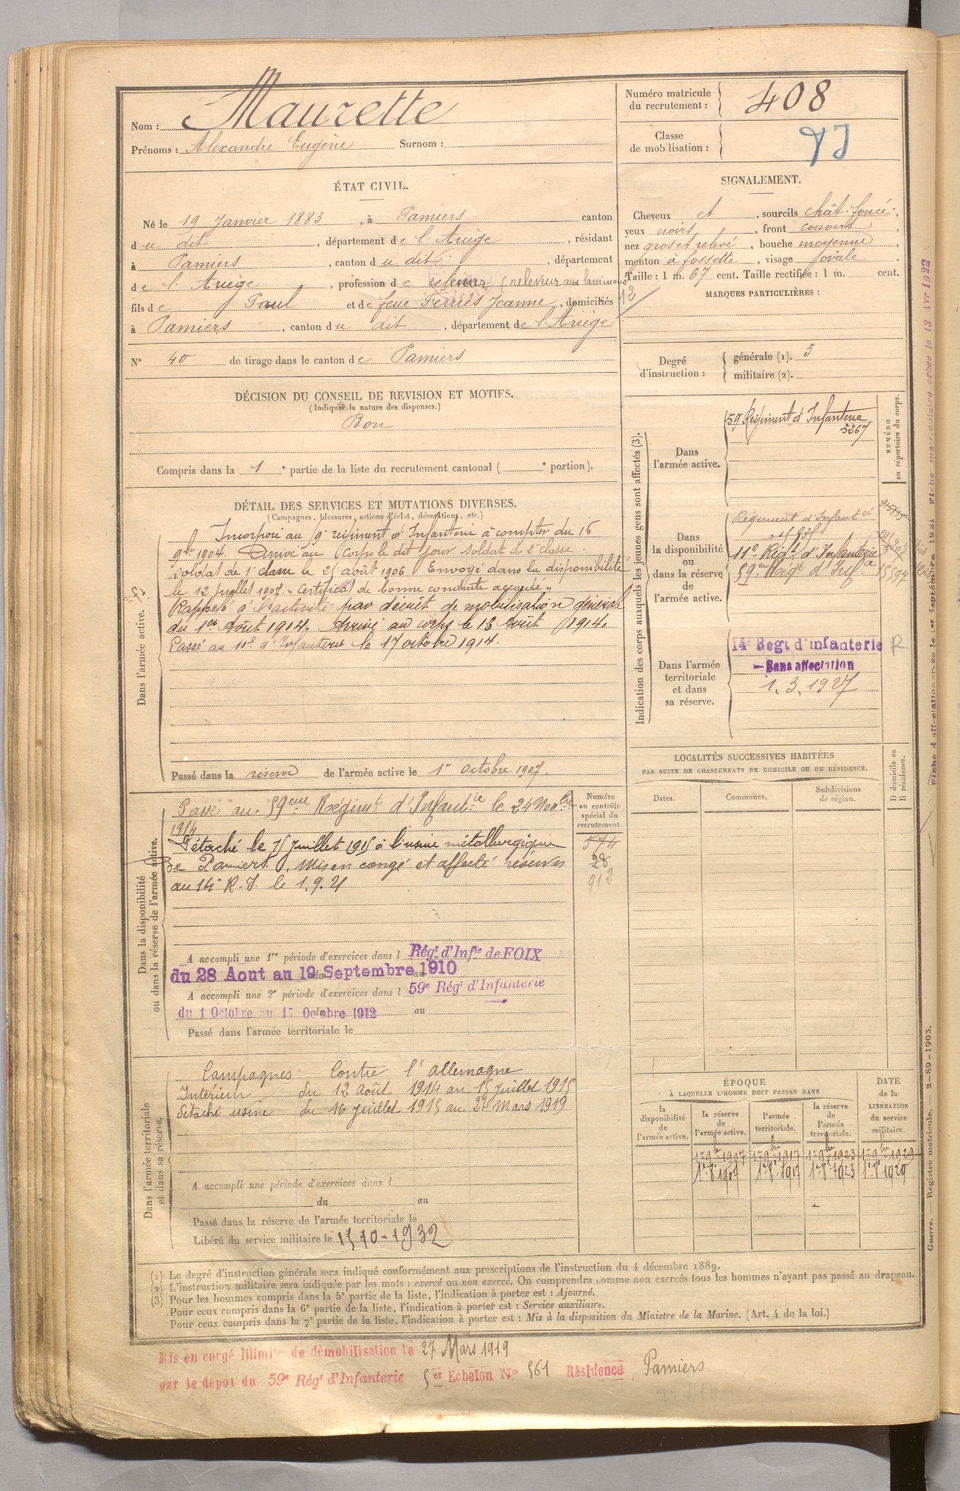 Nom : Maurette
Prénoms : Alexandre Eugène Surnom :
Numéro matricule du recrutement : 408
Classe de mobilisation :
ÉTAT CIVIL.
Né le 19 Janvier 1883, à Pamiers canton
du dit, département de l'Ariège, résidant
à Pamiers, canton du dit, département
de l'Ariège, profession de (releveur aux laminoirs
fils de Paul et de feue Ferriès Jeanne, domiciliés
à Pamiers, canton du dit, département de l'Ariège
N° 40 de tirage dans le canton de Pamiers
SIGNALEMENT.
Cheveux et, sourcils chât. foncé,
yeux noirs, front couvert
nez gros et relevé, bouche moyenne
menton à fossette, visage ovale
Taille : 1 m. 67 cent. Taille rectifiée : 1 m. cent.
MARQUES PARTICULIÈRES :
Degré d'instruction : générale (1). 3
militaire (2).
DÉCISION DU CONSEIL DE REVISION ET MOTIFS.
(Indiquer la nature des dispenses.)
Bon
Compris dans la 1e partie de la liste du recrutement cantonal ( e portion).
DÉTAIL DES SERVICES ET MUTATIONS DIVERSES.
(Campagnes, blessures, actions d'éclat, décorations, etc.)
Dans l'armée active.
Incorporé au 59e régiment d'Infanterie à compter du 16
9bre 1904. Arrivé au Corps le dit jour soldat de 2e classe
Soldat de 1e classe le 25 août 1906 Envoyé dans la disponibilité
le 12 Juillet 1907. « Certificat de bonne conduite accordé »
Rappelé à l'activité par décret de mobilisation général
du 1er Août 1914. Arrivé au corps le 13 Août 1914.
Passé au 11e d'Infanterie le 17 octobre 1914.
Passé dans la réserve de l'armée active le 1er octobre 1907.
Dans la disponibilité ou dans la réserve de l'armée active.
Passé au 59ème Régimt d'Infantie le 24 Nov.bre
1914
Détaché le 15 Juillet 1915 à l'usine métallurgique
de Pamiers. Mis en congé et affecté réserves
au 14e R.I. le 1.9.21
Numéro au contrôle spécial du recrutement.
574
28
912
A accompli une 1re période d'exercices dans l Régt d'Infie de FOIX
du 28 Aout au 19 Septembre 1910
A accompli une 2e période d'exercices dans l 59e Régt d'Infanterie
du 1 Octobre au 17 Octobre 1912 au
Passé dans l'armée territoriale le
Dans l'armée territoriale et dans sa réserve.
Campagnes Contre l'allemagne
Intérieur du 12 Août 1914 au 15 Juillet 1915
Détaché usine du 16 Juillet 1915 au 27 Mars 1919
A accompli une période d'exercices dans l
du au
Passé dans la réserve de l'armée territoriale le
Libéré du service militaire le 15-10-1932
Indication des corps auxquels les jeunes gens sont affectés (3).
NUMÉRO au répertoire du corps.
Dans l'armée active.
59 Régiment d'Infanterie
5267
Dans la disponibilité ou dans la réserve de l'armée active.
Régiment d'Infantie
11e Régt d'Infanterie
59e Régt d'Infie
Dans l'armée territoriale et dans sa réserve.
14e Regt d'infanterie R
Sans affectation
1.3.1927
LOCALITÉS SUCCESSIVES HABITÉES
PAR SUITE DE CHANGEMENTS DE DOMICILE OU DE RÉSIDENCE.
Dates. Communes. Subdivisions de région.
D domicile ou R résidence.
ÉPOQUE
À LAQUELLE L'HOMME DOIT PASSER DANS
la disponibilité de l'armée active.
la réserve de l'armée active.
l'armée territoriale.
la réserve de l'armée territoriale.
DATE de la LIBÉRATION du service militaire.
(1) Le degré d'instruction générale sera indiqué conformément aux prescriptions de l'instruction du 4 décembre 1889.
(2) L'instruction militaire sera indiquée par les mots : exercé ou non exercé. On comprendra comme non exercés tous les hommes n'ayant pas passé au drapeau.
(3) Pour les hommes compris dans la 5e partie de la liste, l'indication à porter est : Ajourné.
Pour ceux compris dans la 6e partie de la liste, l'indication à porter est : Service auxiliaire.
Pour ceux compris dans la 7e partie de la liste, l'indication à porter est : Mis à la disposition du Ministre de la Marine. (Art. 4 de la loi.)
Guerre. — Registre matricule. 2-89-1903.
Mis en congé illimité de démobilisation le 27 Mars 1919
par le dépôt du 59e Régt d'Infanterie 5er Echelon N° 561 Résidence Pamiers